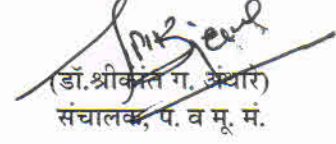 (डॉ.श्रीकांत ग. अंधारे)
संचालक, प. व मू. मं.